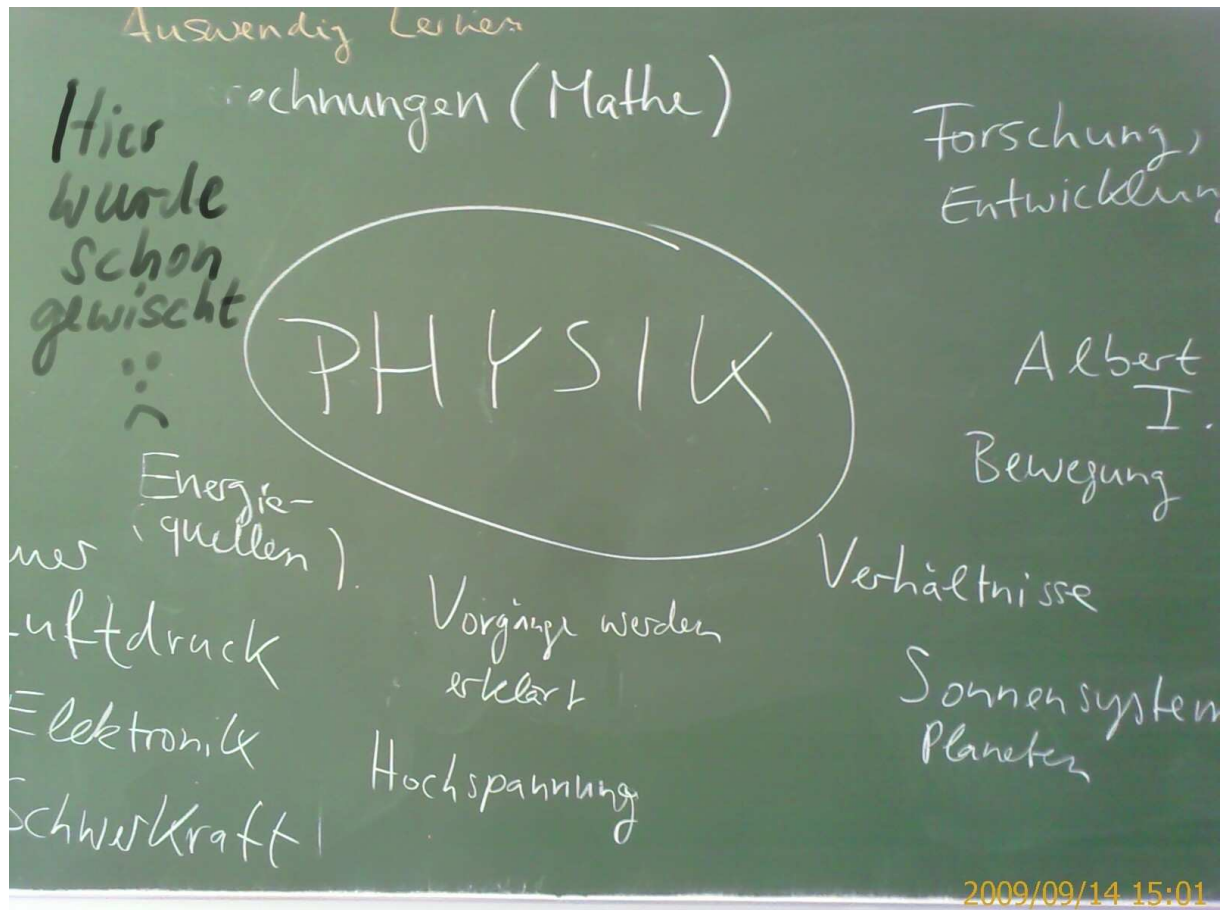 Auswendig Lernen
rechnungen (Mathe)
Hier
wurde
schon
gewischt
:(
Forschung,
Entwicklung
PHYSIK
Albert
I.
Bewegung
Energie-
(quellen).
Luftdruck
Elektronik
Schwerkraft
Vorgänge werden
erklärt
Hochspannung
Verhältnisse
Sonnensystem
Planeten
2009/09/14 15:01